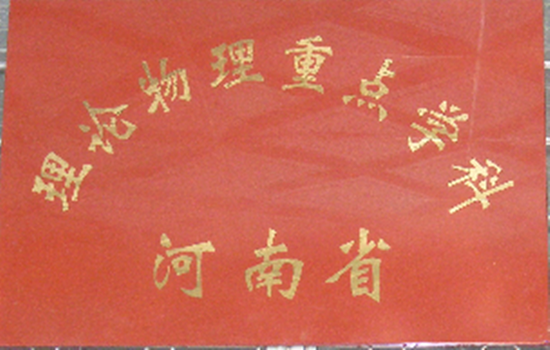 理论物理重点学科
河南省